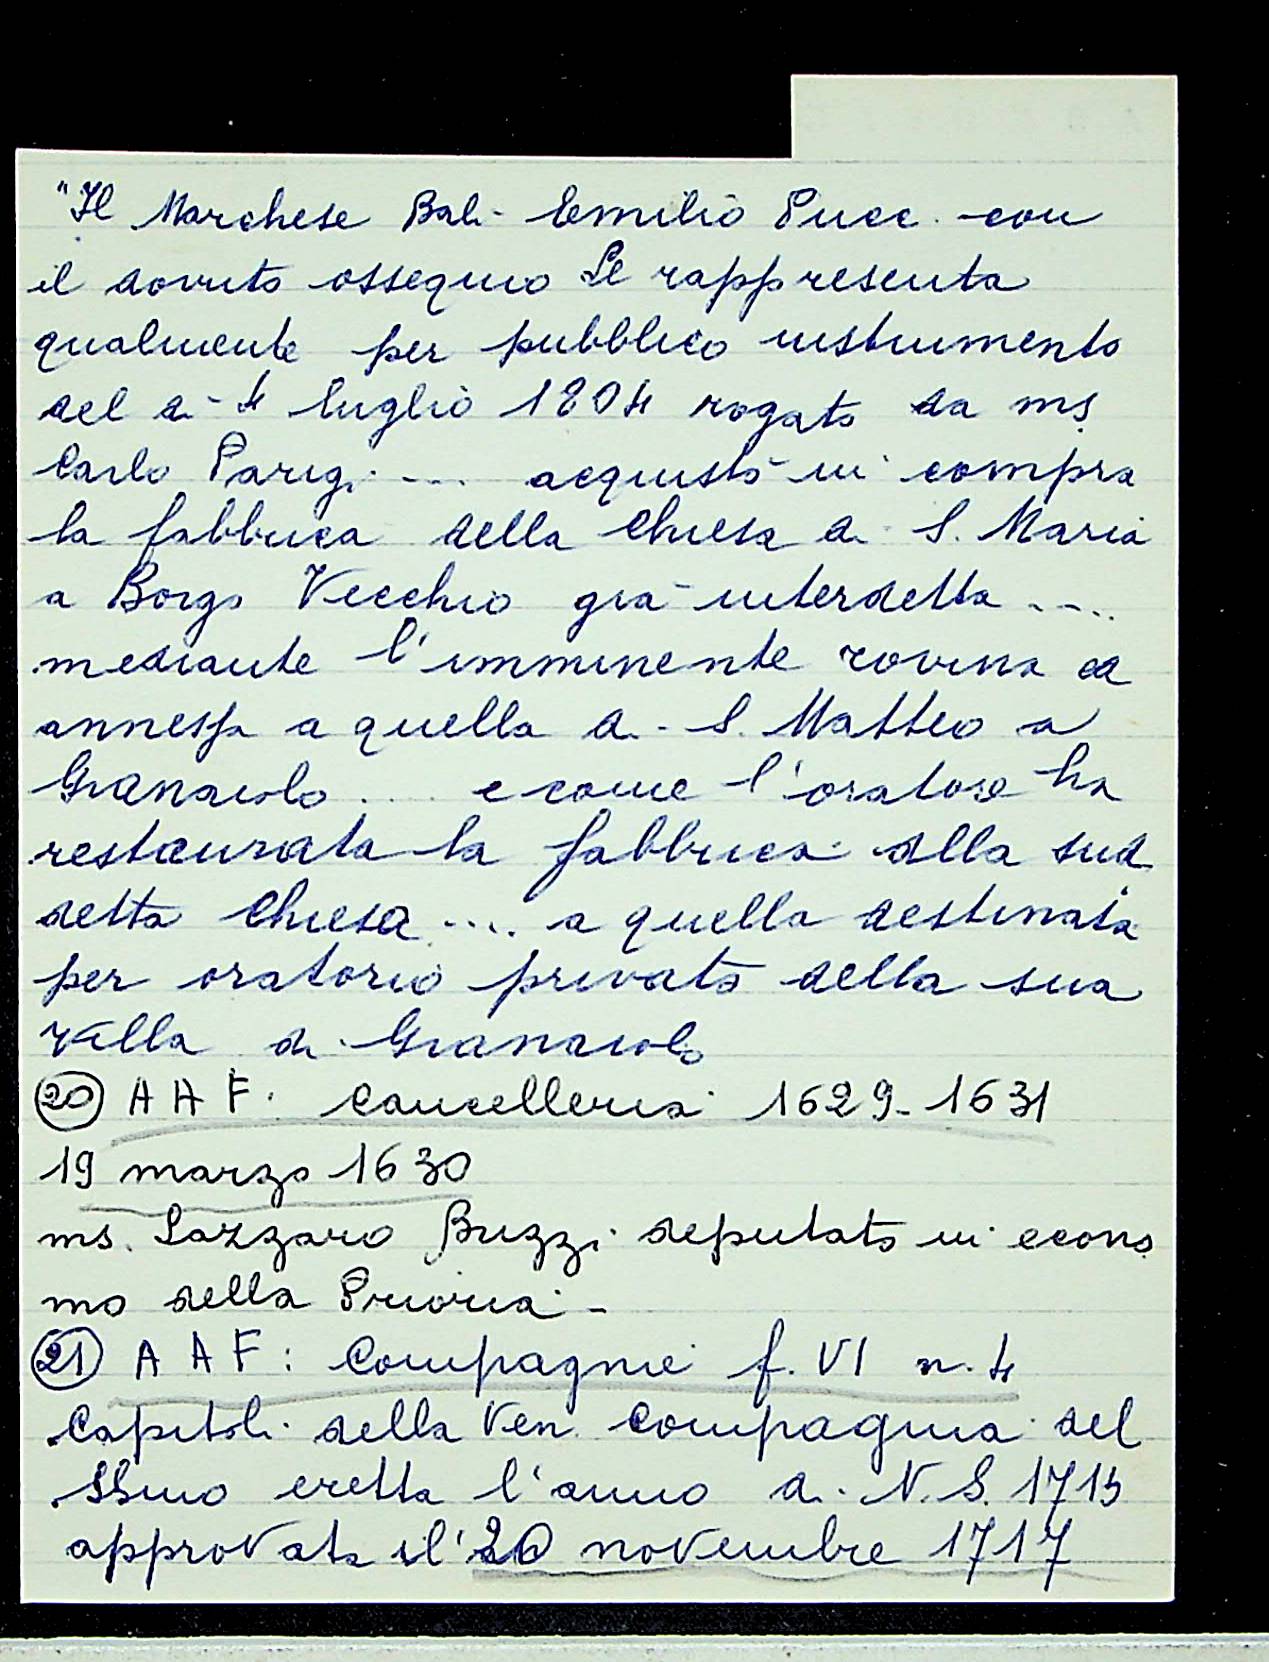 "Il Marchese Balì Emilio Pucci con
il dovuto ossequio Le rappresenta
qualmente per pubblico instrumento
del dì 4 luglio 1804 rogato da ms.
Carlo Parigi .... acquistò in compra
la fabbrica della Chiesa di S. Maria
a Borgo Vecchio già interdetta ....
mediante l'imminente rovina ed
annessa a quella di S. Matteo a
Granaiolo .... e come l'oratore ha
restaurata la fabbrica della sud
detta Chiesa .... a quella destinata
per oratorio privato della sua
villa di Granaiolo
20 A A F: Cancelleria 1629-1631
19 marzo 1630
ms. Lazzaro Buzzi deputato in econo
mo della Prioria -
21 A A F: Compagnie f. VI n. 4
Capitoli della Ven. Compagnia del
SSmo eretta l'anno di N. S. 1715
approvata il 20 novembre 1717